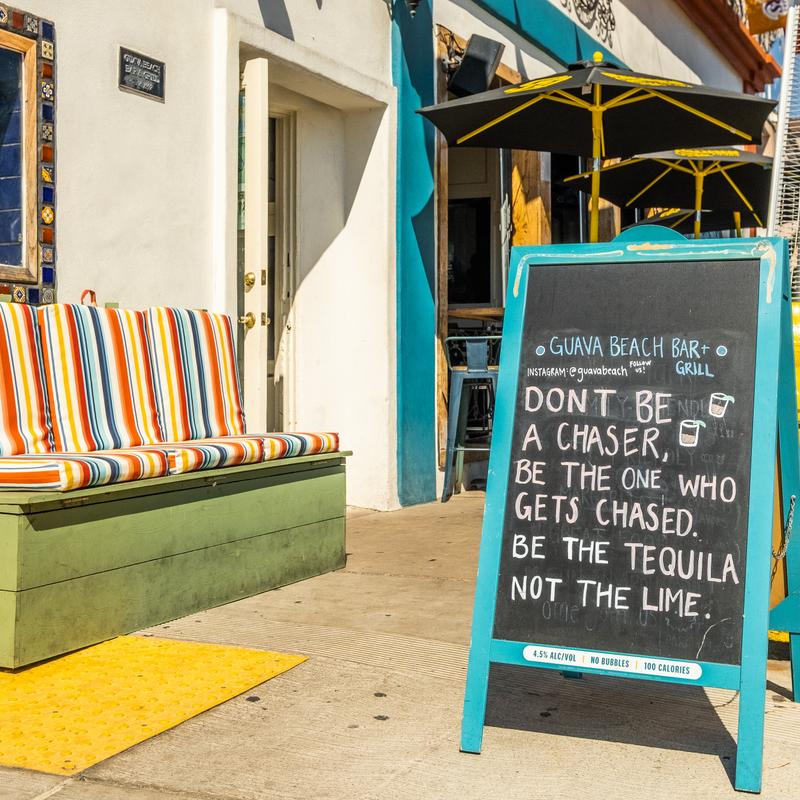 GUAVA BEACH
BAR & GRILL
GUAVA BEACH BAR+
GRILL
INSTAGRAM:@guavabeach FOLLOW US!
DON'T BE
A CHASER,
BE THE ONE WHO
GETS CHASED.
BE THE TEQUILA
NOT THE LIME.
4.5% ALC/VOL | NO BUBBLES | 100 CALORIES